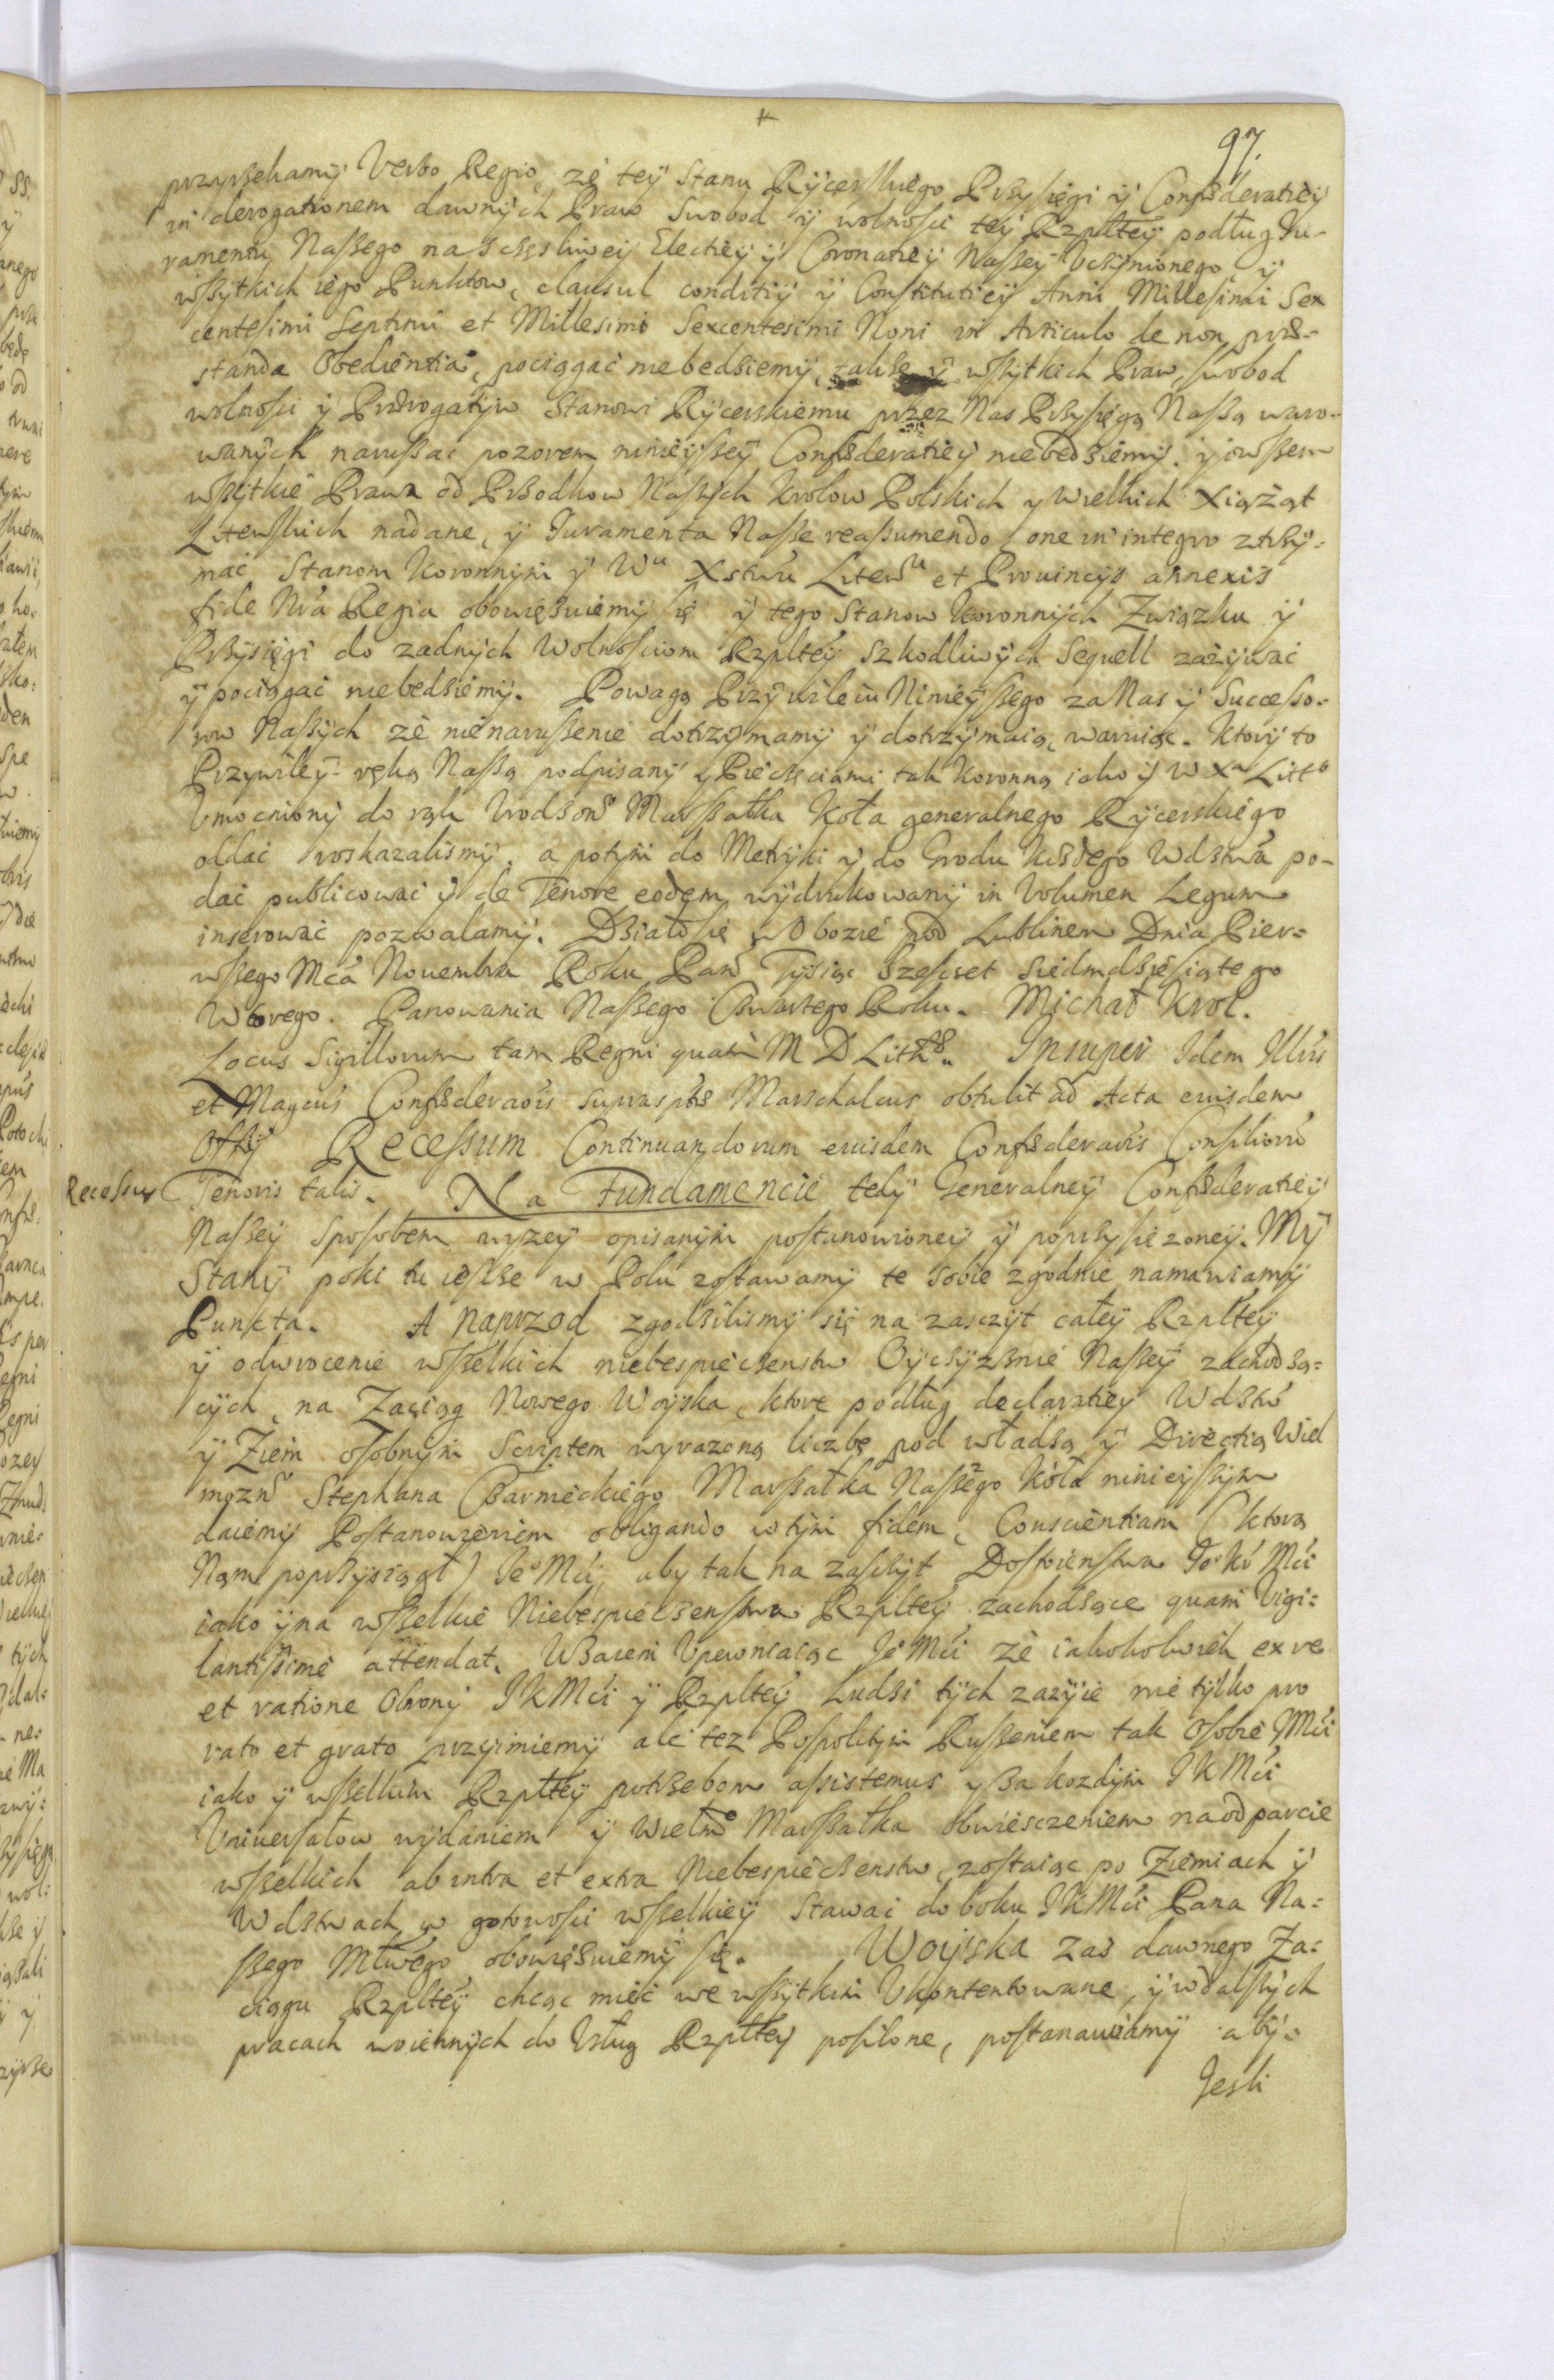 97.
przyrzekamy Verbo Regio, zé teÿ Stanu Rÿcerskiego Przysięgi ÿ Confœderatieÿ
in derogationem dawnÿch Praw Swobod ÿ wolnosci teÿ Rzpltey podług Ju-
ramentu Naßego na sczęsliweÿ Electieÿ ÿ Coronatieÿ Naßeÿ Vczÿnionego, ÿ
wßÿtkich iego Punktow, clausul conditiÿ ÿ Constitutieÿ Anni Millesimi Sex
centesimi Septimi et Millesimi Sexcentesimi Noni in Articulo de non præ-
standa Obedientia, pociągać niebedziemÿ, także ÿ wßÿtkich Praw, swobod
wolnosci ÿ Prærogatÿw Stanowi Rÿcerskiemu przez Nas Przysięgą Naßą waro-
wanÿch narußac pozorem ninieÿßeÿ Confœderatieÿ niebedziemÿ. ÿ owßem
wßÿtkie Prawa od Przodkow Naßÿch Krolow Polskich y Wielkich Xiążąt
Litewskich nadane, ÿ Juramenta Naße reassumendo one in integro ztrzÿ-
mać Stanom Koronnÿm ÿ Wu Xstwu Litewu et Prouincÿs annexis
fide Nra Regia obowięzuiemÿ się ÿ tego Stanow Koronnÿch Związku ÿ
Przÿsięgi do zadnÿch Wolnosciom Rzplteÿ Szkodliwÿch Sequell zażÿwać
ÿ pociągać niebedziemÿ. Powagą Przÿwileiu Ninieÿßego za Nas ÿ Successo-
row Naßÿch zé nienarußenie dotrzÿmamÿ ÿ dotrzÿmaią, waruiąc. Ktorÿ to
Przywileÿ ręką Naßą podpisanÿ y Pieczęciami tak Koronną iako ÿ W Xa Litto
Vmocnionÿ do rąk Vrodzono Marßałka Koła generalnego Rÿcerskiego
oddać roskazalismÿ, a potÿm do Metrÿki ÿ do Grodu Kożdego Wdstwa po-
dać publicować ÿ de Tenore eodem wÿdrukowanÿ in Volumen Legum
inserować pozwalamÿ. Działo się w Obozie pod Lublinem Dnia Pier-
wßego Mca Nouembra Roku Pań Tÿsiąc Szescset Siedmdzięsiątego
Wtorego. Panowania Naßego Czwartego Roku. Michał Krol.
Locus Sigillorum tam Regni quam M D Lithæ. Insuper Idem Illris
et Magcus Confœderaois supraspts Marschalcus obtulit ad Acta euisdem
Offÿ Recessum Continuandorum euisdem Confœderaois Consiliorū
Recessus Tenoris talis. Na Fundamencie tedÿ Generalneÿ Confœderatieÿ
Naßeÿ Sposobem wyzeÿ opisanÿm postanowioneÿ ÿ poprzysięzoneÿ. Mÿ
Stanÿ poki tu ieszcze w Polu zostawamÿ te sobie zgodnie namawiamÿ
Puncta. A naprzod zgodzilismÿ się na zasczÿt całeÿ Rzplteÿ
ÿ odwrocenie wßelkich niebespieczenstw Oÿczÿznie Naßeÿ zachodzą-
cÿch, na Zaciąg Nowego Woÿska, ktore podług declaratieÿ Wdztw
ÿ Ziem osobnÿm Scriptem wyrazoną liczbę pod władzą ÿ Directią Wiel
mozno Stephana Czarnieckiego Marßałka Naßego Koła ninieÿßÿm
daiemÿ Postanowieniem obligando w tÿm fidem, Conscientiam (ktorą
Nam poprzÿsiągł) Je Mci, aby tak na zasczÿt Dostoienstwa Jo Ki Mci
iako ÿ na wßelkie Niebespieczenstwa Rzplteÿ zachodzące quam Vigi-
lantissime attendat. Wzaiem Vpewniaiąc Je Mci zé iakokolwiek ex re
et ratione Obronÿ J K Mci ÿ Rzplteÿ Ludzi tÿch zazÿie nie tÿlko pro
rato et grato przyimiemÿ ale tez Pospolitÿm Rußeniem tak Osobie J Mci
iako ÿ wßelkim Rzplteÿ potrzebom assistemus y za kozdÿm J K Mci
Vniuersałow wÿdaniem ÿ Wielmo Marßałka obwiesczeniem na odparcie
wßelkich ab intra et extra Niebespieczenstw, zostaiąc po Ziemiach ÿ
Wdztwach w gotowosci wßelkieÿ Stawać do boku J K Mci Pana Na-
ßego Młwego obowięzuiemÿ się. Woÿska zas dawnego Za-
ciągu Rzplteÿ chcąc mieć we wßÿtkim Vkontentowane, ÿ w dalßÿch
pracach woiennÿch do Vsług Rzpltey posilone, postanawiamÿ abÿ-
Jesli